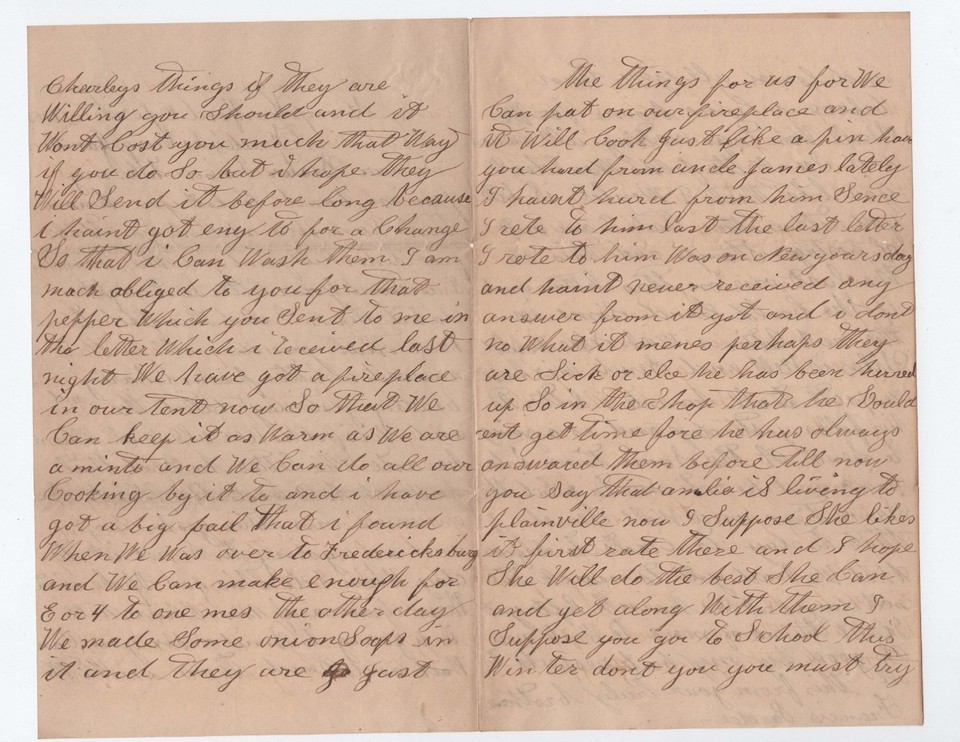 Charleys things if they are
Willing you Should and it
Wont Cost you much that Way
if you do So but i hope they
Will Send it before long because
i haint got eny to for a Change
So that i Can Wash them I am
much obliged to you for that
pepper Which you Sent to me in
the letter Which i received last
night We have got a fireplace
in our tent now So that We
Can keep it as Warm as We are
a minto and We Can do all our
Cooking by it to and i have
got a big pail that i found
When We Was over to Fredericksburg
and We Can make enough for
3 or 4 to one mes the other day
We made Some onion Soaps in
it and they are just
the things for us for We
Can put on our fireplace and
it Will Cook just like a pin have
you hurd from uncle James lately
I haint hurd from him Sence
I rete to him last the last letter
I rote to him Was on New yoursday
and haint never received any
answer from it yet and i dont
no What it menes perhaps they
are Sick or else he has been hurred
up So in the Shop that he Could
ent get time fore he has always
answared them before till now
you Say that amlia is living to
plainville now I Suppose She likes
it first rate there and I hope
She Will do the best She Can
and get along With them I
Suppose you go to School this
Winter dont you you must try